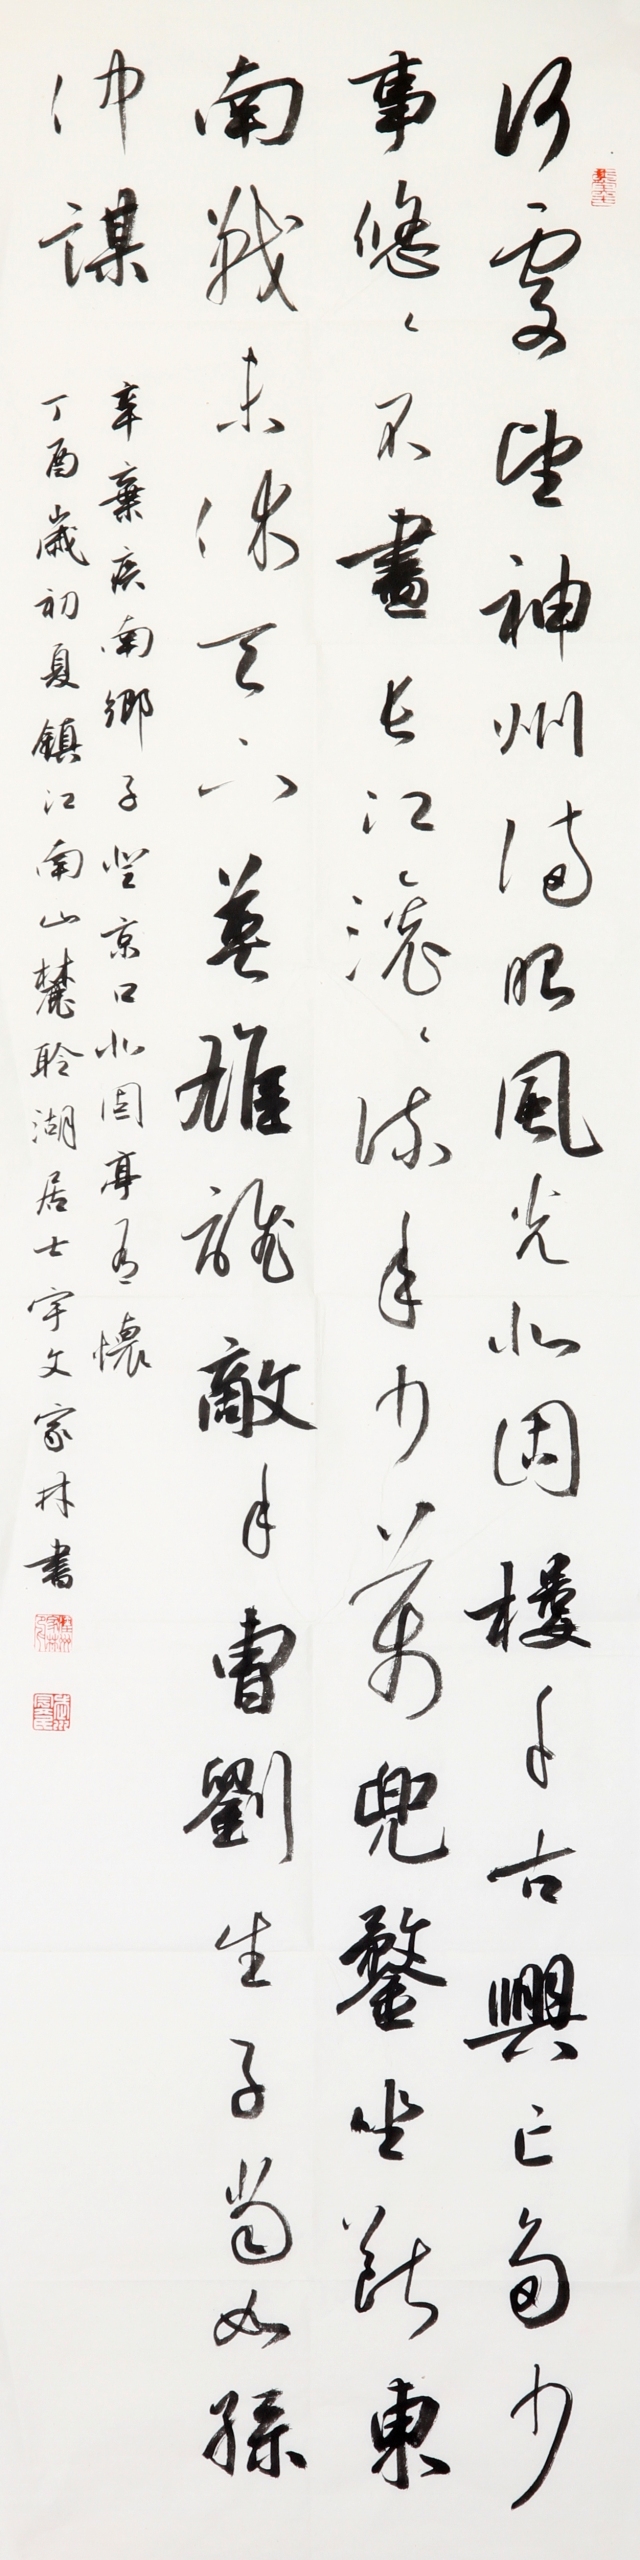 何處望神州滿眼風光北固樓千古興亡多少
事悠々不盡長江滾々流年少萬兜鍪坐斷東
南戰未休天下英雄誰敵手曹劉生子當如孫
仲謀
辛棄疾南鄉子登京口北固亭有懷
丁酉歲初夏鎮江南山麓聆湖居士宇文家林書